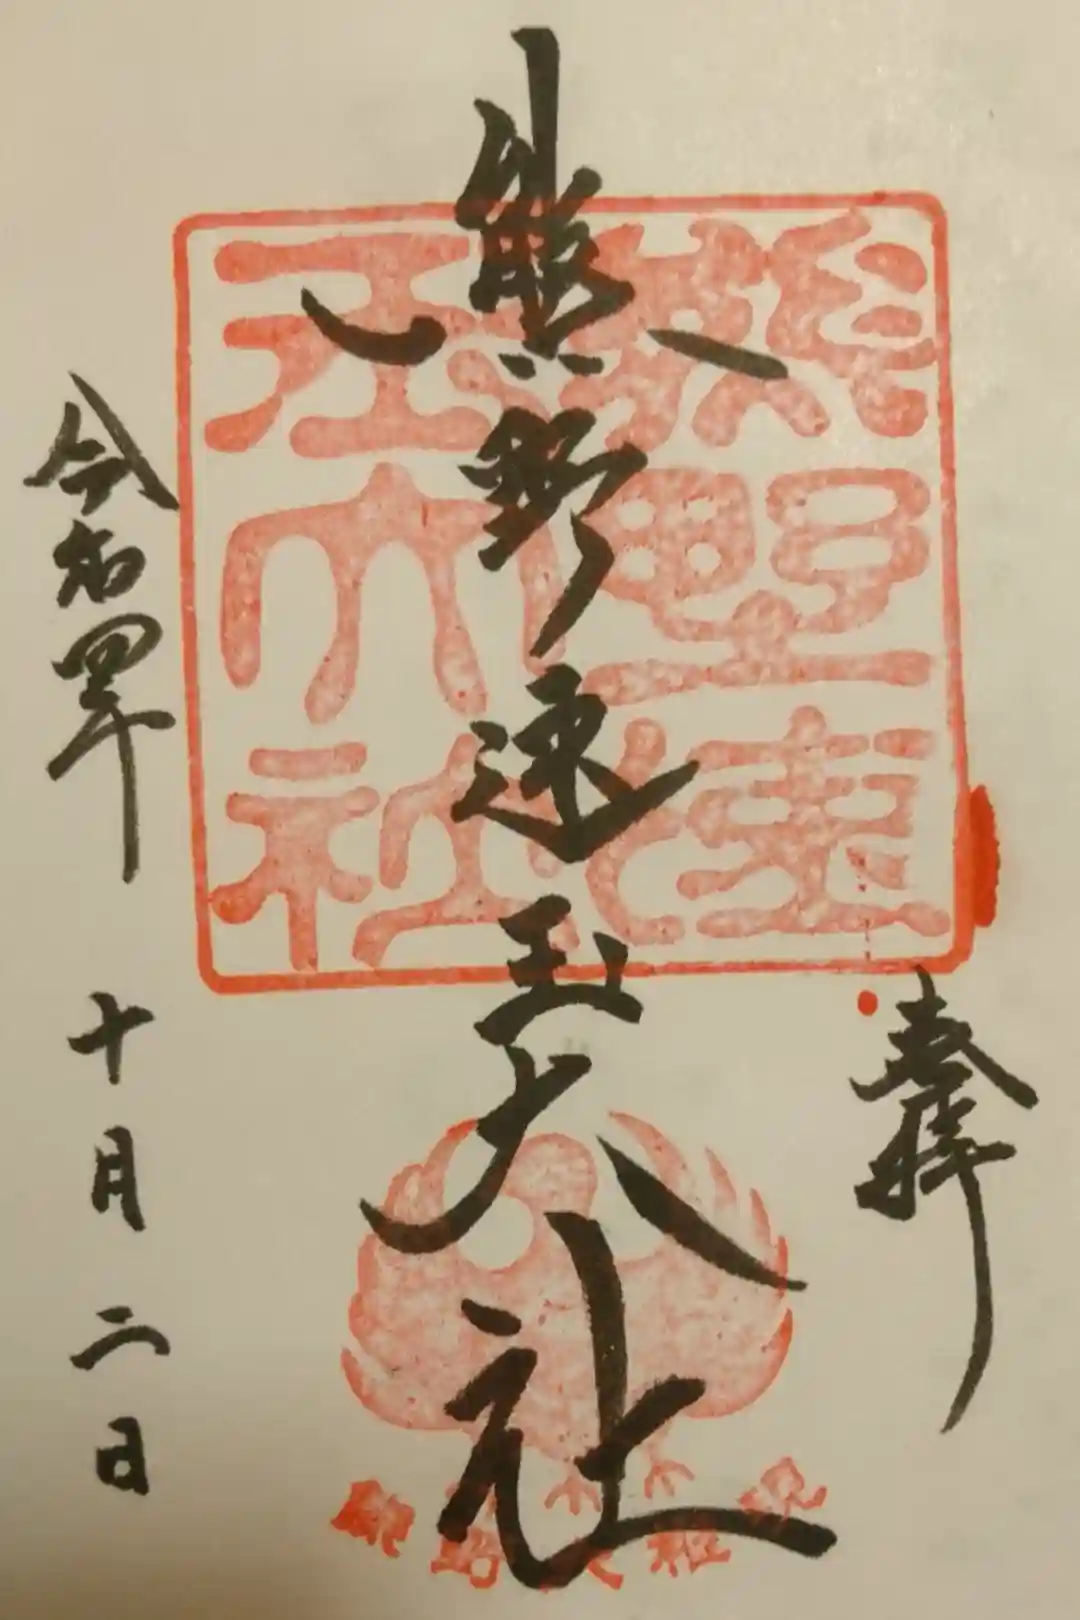 奉拝
熊野速玉大社
令和四年 十月二日
熊野速
玉大社
熊野大権現